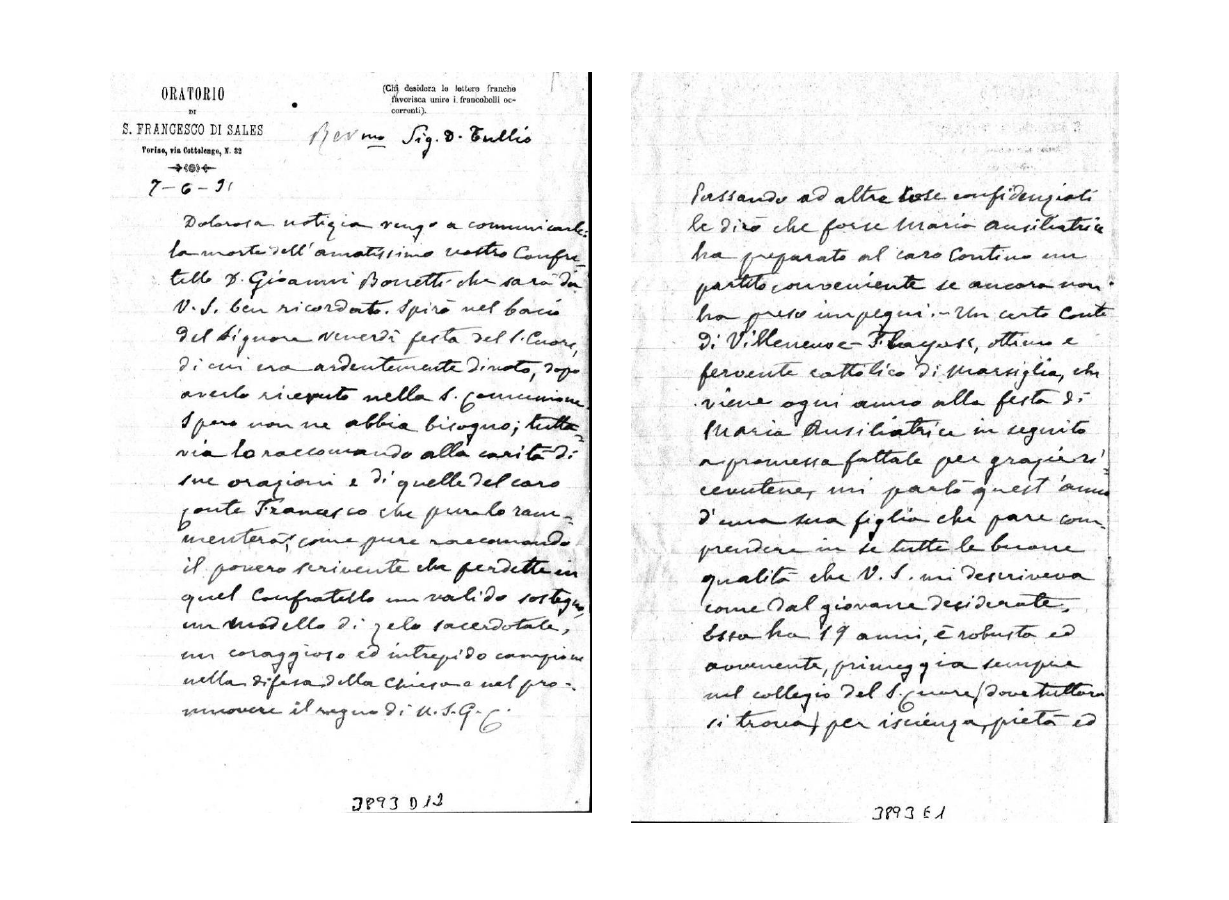 ORATORIO
DI
S. FRANCESCO DI SALES
Torino, via Cottolengo, N. 32
(Chi desidera le lettere franche
favorisca unire i francobolli oc-
correnti).
Rev.mo Sig. D. Tullio
7-6-91
Dolorosa notizia vengo a comunicarle:
la morte dell'amatissimo nostro Confra-
tello D. Gioanni Bonetti che sarà da
V. S. ben ricordato. Spirò nel bacio
del Signore venerdì festa del S. Cuore,
di cui era ardentemente divoto, dopo
averlo ricevuto nella S. Comunione.
Spero non ne abbia bisogno; tutta-
via lo raccomando alla carità di
sue orazioni e di quelle del caro
Conte Francesco che pure lo ram-
menterà, come pure raccomando
il povero scrivente che perdette in
quel Confratello un valido sostegno,
un modello di zelo sacerdotale,
un coraggioso ed intrepido campione
nella difesa della Chiesa e nel pro-
muovere il regno di N. S. G. C.
3893 D 12
Passando ad altre cose confidenziali
le dirò che forse Maria Ausiliatrice
ha preparato al caro Contino un
partito conveniente se ancora non
ha preso impegni. - Un certo Conte
di Villeneuve - Flayosc, ottimo e
fervente cattolico di Marsiglia, che
viene ogni anno alla festa di
Maria Ausiliatrice in seguito
a promessa fattale per grazie ri-
cevutene, mi parlò quest'anno
d'una sua figlia che pare com
prendere in se tutte le buone
qualità che V. S. mi descriveva
come dal giovane desiderate.
Essa ha 19 anni, è robusta ed
avvenente, primeggia sempre
nel collegio del S. Cuore (dove tuttora
si trova) per iscienza, pietà ed
3893 E 1